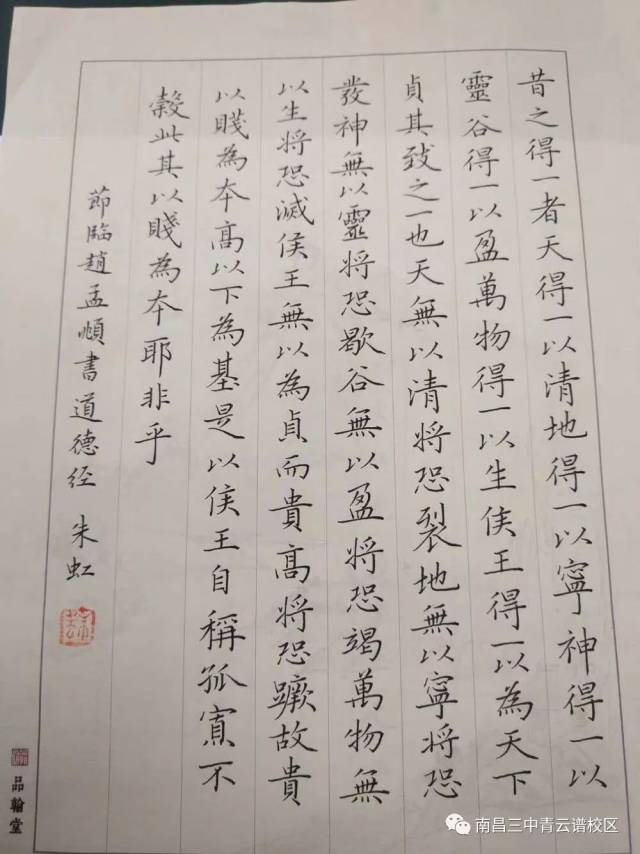 昔之得一者天得一以清地得一以寧神得一以
靈谷得一以盈萬物得一以生侯王得一以為天下
貞其致之一也天無以清將恐裂地無以寧將恐
發神無以靈將恐歇谷無以盈將恐竭萬物無
以生將恐滅侯王無以為貞而貴高將恐蹶故貴
以賤為本高以下為基是以侯王自稱孤寡不
穀此其以賤為本耶非乎
節臨趙孟頫書道德经 朱虹
品翰堂
南昌三中青云谱校区